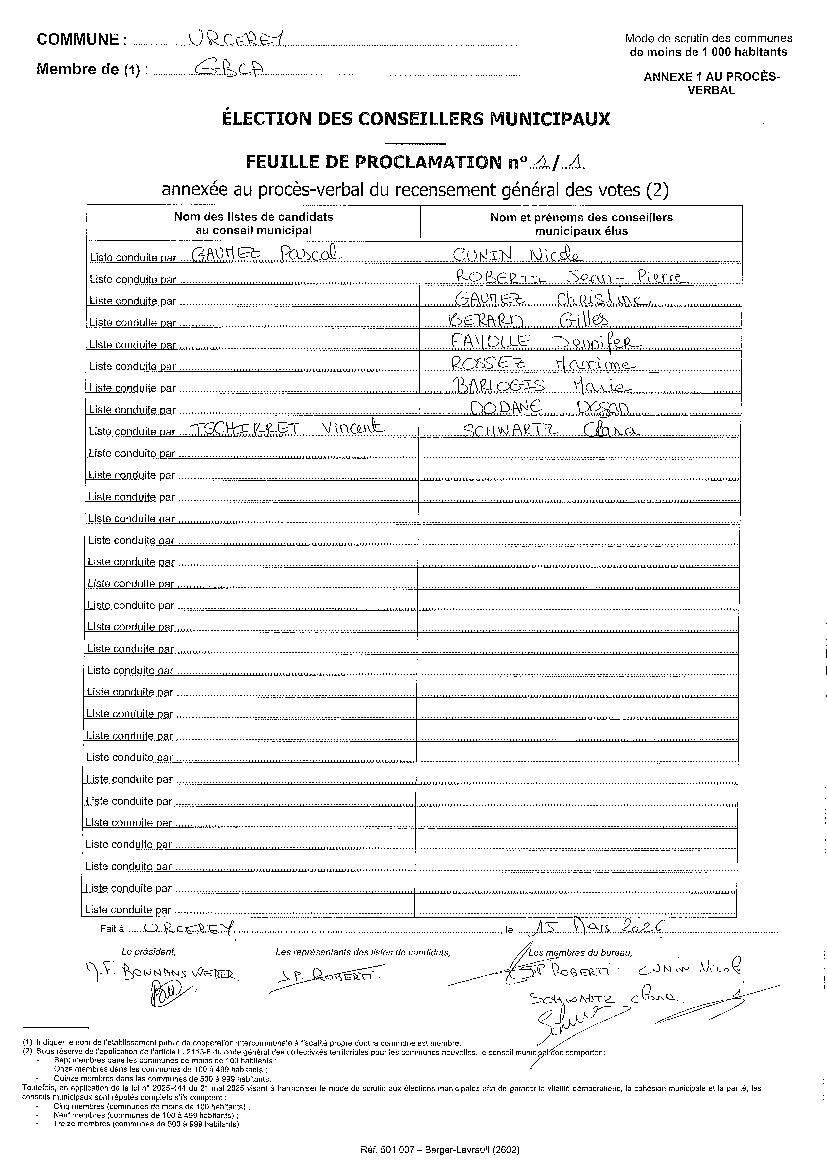 COMMUNE : URCEREY
Mode de scrutin des communes
de moins de 1 000 habitants
Membre de (1) : GBCA
ANNEXE 1 AU PROCÈS-
VERBAL
ÉLECTION DES CONSEILLERS MUNICIPAUX
FEUILLE DE PROCLAMATION n° 1/1
annexée au procès-verbal du recensement général des votes (2)
Nom des listes de candidats
au conseil municipal
Nom et prénoms des conseillers
municipaux élus
Liste conduite par GAUMEZ Pascal CUNIN Nicole
Liste conduite par ROBERTI Jean-Pierre
Liste conduite par GAUMEZ Christine
Liste conduite par BERARD Gilles
Liste conduite par FAYOLLE Jennifer
Liste conduite par ROSSEZ Maxime
Liste conduite par BARLOGIS Marie
Liste conduite par DODANE
Liste conduite par TSCHIRRET Vincent SCHWARTZ Clara
Liste conduite par
Liste conduite par
Liste conduite par
Liste conduite par
Liste conduite par
Liste conduite par
Liste conduite par
Liste conduite par
Liste conduite par
Liste conduite par
Liste conduite par
Liste conduite par
Liste conduite par
Liste conduite par
Liste conduite par
Liste conduite par
Liste conduite par
Liste conduite par
Liste conduite par
Liste conduite par
Liste conduite par
Liste conduite par
Fait à URCEREY, le 15 Mars 2026
Le président,
Les représentants des listes de candidats,
Les membres du bureau,
M.F. BONNANS WEBER
J.P. ROBERTI
JP ROBERTI. CUNIN Nicole
SCHWARTZ Clara
(1) Indiquer le nom de l'établissement public de coopération intercommunale à fiscalité propre dont la commune est membre.
(2) Sous réserve de l'application de l'article L. 2113-8-1 du code général des collectivités territoriales pour les communes nouvelles, le conseil municipal doit comporter :
- Sept membres dans les communes de moins de 100 habitants ;
- Onze membres dans les communes de 100 à 499 habitants ;
- Quinze membres dans les communes de 500 à 999 habitants.
Toutefois, en application de la loi n° 2025-444 du 21 mai 2025 visant à harmoniser le mode de scrutin aux élections municipales afin de garantir la vitalité démocratique, la cohésion municipale et la parité, les
conseils municipaux sont réputés complets s'ils comptent :
- Cinq membres (communes de moins de 100 habitants) ;
- Neuf membres (communes de 100 à 499 habitants) ;
- Treize membres (communes de 500 à 999 habitants)
Réf. 501 007 – Berger-Levrault (2602)